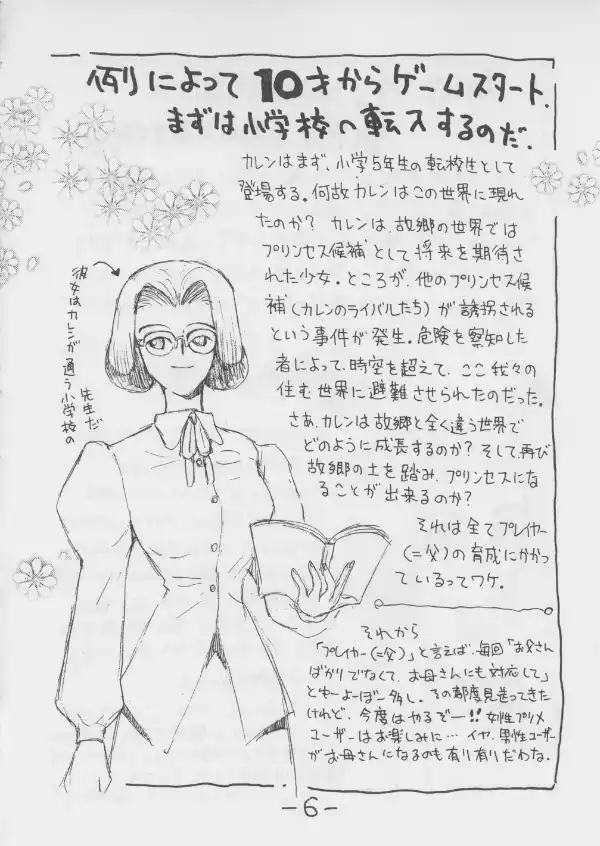 例によって10才からゲームスタート.
まずは小学校へ転入するのだ.
カレンはまず、小学5年生の転校生として
登場する。何故カレンはこの世界に現れ
たのか？ カレンは、故郷の世界では
プリンセス候補として将来を期待さ
れた少女。ところが、他のプリンセス候
補(カレンのライバルたち)が誘拐される
という事件が発生。危険を察知した
者によって、時空を超えて、ここ我々の
住む世界に避難させられたのだった。
さあ、カレンは故郷と全く違う世界で
どのように成長するのか？ そして、再び
故郷の土を踏み、プリンセスにな
ることが出来るのか？
それは全てプレイヤー
(=父)の育成にかかっ
ているってワケ。
彼女はカレンが通う小学校の
先生だ
それから
「プレイヤー(=父)」と言えば、毎回「お父さん
ばかりでなくて、お母さんにも対応して」
とゆーよーぼー多し。その都度見送ってきた
けれど、今度はやるぞー!! 女性プリメ
ユーザーはお楽しみに… イヤ、男性ユーザー
がお母さんになるのも有り有りだわな。
-6-